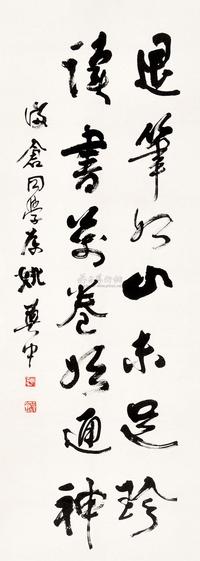 退筆如山未足珍
讀書萬卷始通神
海倉同學索 姚奠中